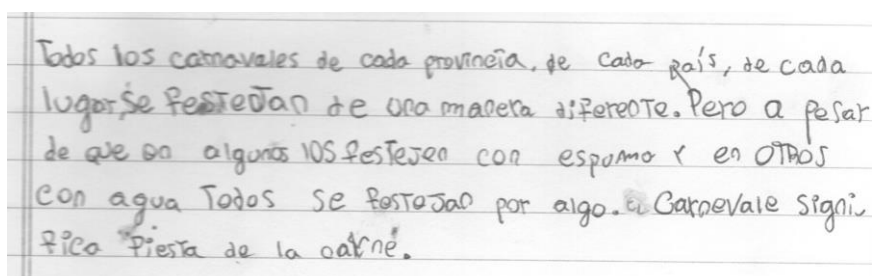 Todos los carnavales de cada provincia, de cada país, de cada
lugar se festejan de una manera diferente. Pero a pesar
de que en algunos los festejen con espuma y en otros
con agua Todos se festejan por algo. Carnevale signi
fica fiesta de la carne.